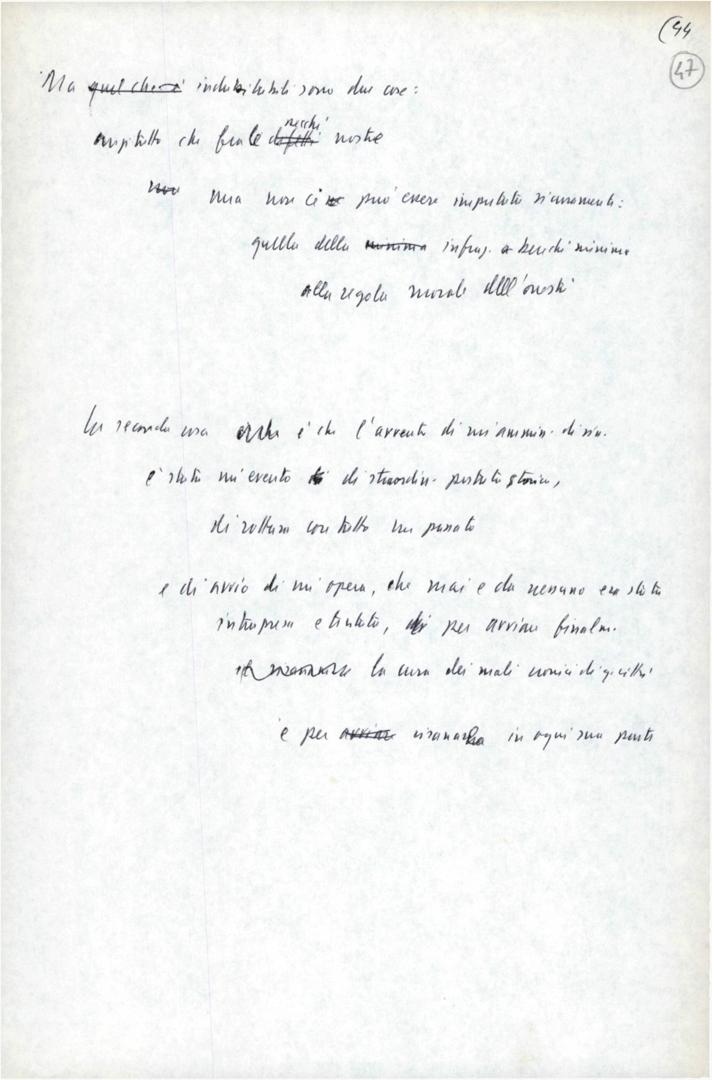 (44
47
Ma quel che è indubitabili sono due cose:
anzitutto che fra le difetti pecche nostre
non una non ci può essere imputata sicuramente:
quella della minima infraz. benché minima
alla regola morale dell'onestà
La seconda cosa è che l'avvento di un'ammin. di sin.
è stato un evento di straordin. portata storica,
di rottura con tutto un passato
e di avvio di un'opera, che mai e da nessuno era stata
intrapresa e tentata, per avviare finalm.
la cura dei mali cronici di q. città
e per avviare risanarla in ogni sua parte